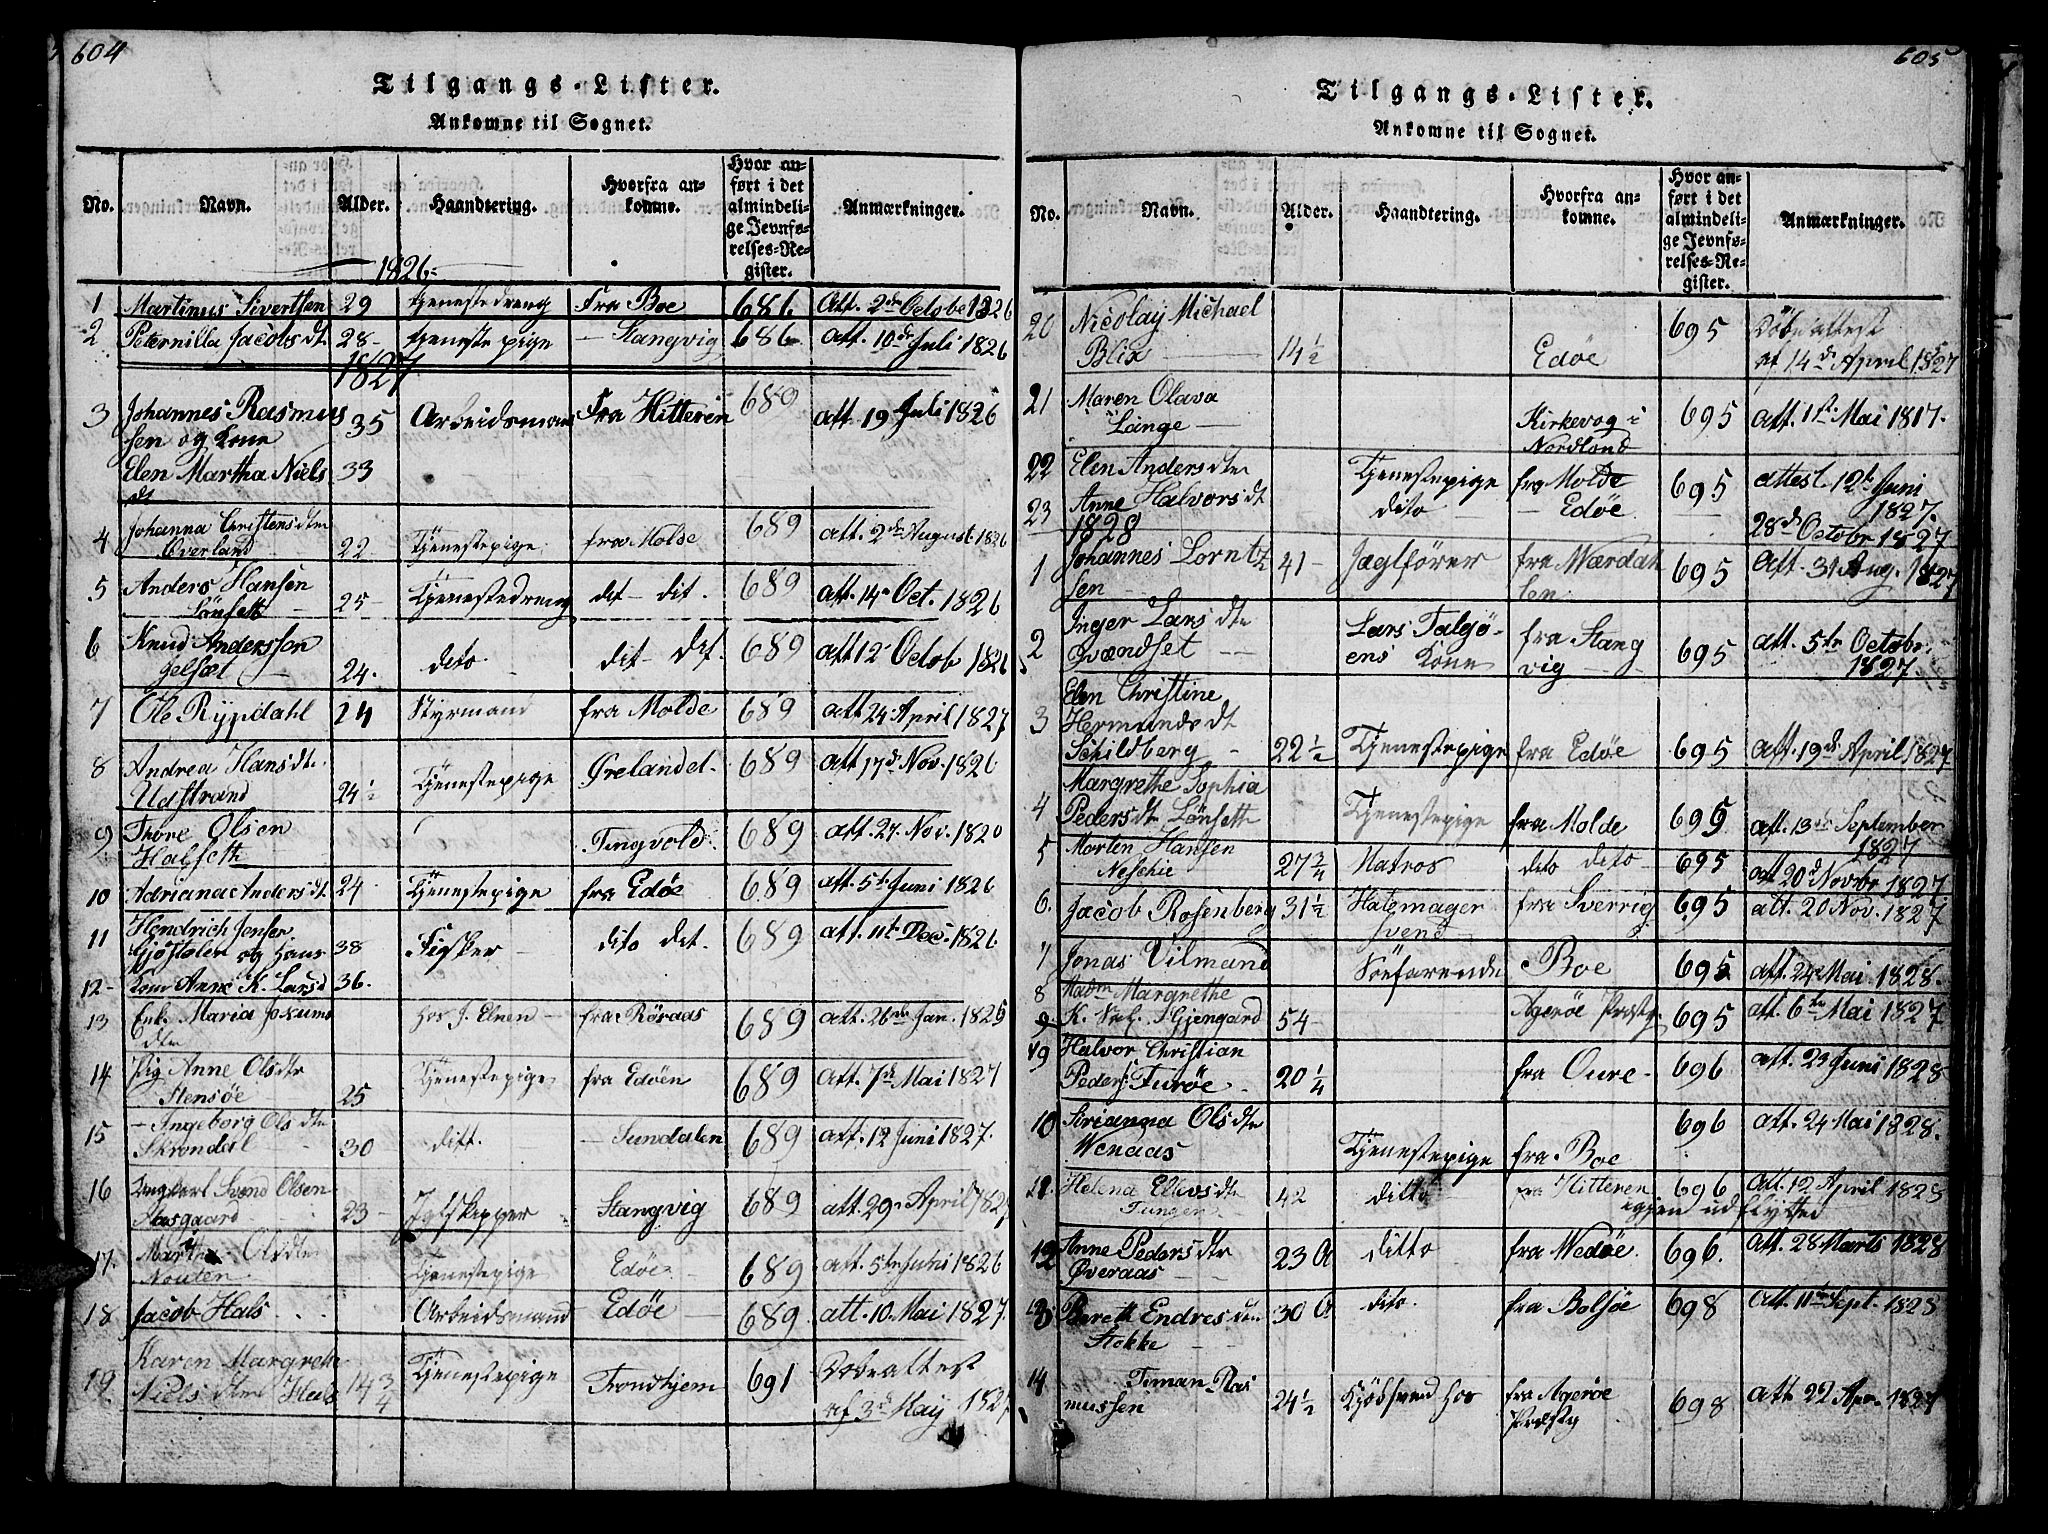 604
Tilgangs-Lister.
Ankomne til Sognet.
No. Navn. Alder. Haandtering. Hvorfra ankomne. Hvor anført i det almindelige Jevnførelses-Register. Anmærkninger.
1826
1 Martinus Sivertsen 29 tjenestedreng Fra Boe 686 Att. 2de Octobe 1826
2 Peternilla Jacobsdt 28 tjenestepige - Stangvig 686 att. 10de Juli 1826
1827
3 Johannes Rasmus 35 Arbeidsmand Fra Hitteren 689 att. 19 Juli 1826
sen og Kone
Elen Martha Niels 33
dt
4 Johanna Christensdtr
Overland 22 Tjenestepige fra Molde 689 att. 2de August 1826
5 Anders Hansen
Lönseth 25 Tjenestedreng dit - dit. 689 att. 14 Oct. 1826
6 Knud Anderssen
Gelsæt 24 dito dit - dit. 689 att 12 Octob 1826
7 Ole Rypdahl 24 Styrmand fra Molde 689 att 24 April 1827
8 Andrea Hansdtr
Udstrand 24½ Tjenestepige Ørelandet 689 att 17d Nov. 1826
9 Thore Olsen
Halseth Tingvold 689 att. 27 Nov. 1820
10 Adriana Andersdt 24 Tjenestepige fra Edöe 689 att. 5te Juni 1826
11 Hendrich Jensen
Gjøstølen og Hans 38 Fisker dito dit. 689 att. 11te Dec. 1826
12 Kone Anne K. Larsd 36.
13 Enk. Maria Josums
dtr hos J. Elnen fra Röraas 689 att. 26de Jan. 1825
14 Pig Anne Olsdtr
Stensöe 25 Tjenestepige fra Edöen 689 att. 7d Mai 1827
15 - Ingeborg Olsdtr
Skrondal 30 ditt. - Sundalen 689 att. 12 Juni 1827.
16 Svend Olsen
Aasgaard 23 Stangvig 689 att. 29 April 1827
17. Martha Olsdtr
Tjenestepige Edöe 689 att. 5te Juni 1826
18 Jacob Hals Arbeidsmand Edöe 689 att. 10. Mai 1827.
19. Karen Margrethe
Niels dtr Hals 14¾ Tjenestepige Trondhjem 691 Dobeattest
af 3d Maj 1827
605
Tilgangs-Lister.
Ankomne til Sognet.
No. Navn. Alder. Haandtering. Hvorfra ankomne. Hvor anført i det almindelige Jevnførelses-Register. Anmærkninger.
20 Nicolay Michael
Blix 14½ Edöe 695 Döbeattest
af 14de April 1827
21 Maren Olava
Lange Kirkevog i
Nordland 695 att. 1ste Mai 1817.
22 Elen Andersdtr Tjenestepige fra Molde 695 attest 12te Juni
1827.
23 Anne Halvorsdt dito - Edöe 28de Octobr 1827
1828
1 Johannes Lorntz
sen 41 Jagtförer fra Wærdah
len 695 att. 31 Aug. 1827
2 Inger Lars dtr
Qvændset Lars Talgjö-
ens Kone fra Stang
vig 695 att. 5te Octobr.
1827.
3 Elen Christine
Hermunds dt
Schildberg 22½ Tjenestepige fra Edöe 695 att. 19de April 1827
4 Margrethe Sophia
Pedersdtr Lönseth Tjenestepige fra Molde 695 att. 13de September
1827
5 Morten Hansen
27¾ Matros dito dito 695 att 20d Novbr 1827
6. Jacob Rosenberg 31½ Hatemager
svend fra Sverrig 695 att. 20 Nov. 1827
7 Jonas Vilmand Söefarende Boe 695 att. 24 Mai 1828.
8 Madm Margrethe
9. K. Sal. Gjengaard 54 Agerøe Præstg. 695 att. 6te Mai 1827
9 Halvor Christian
Peders. Furöe 20¼ fra Oure 696 att. 23 Juni 1828
10 Sirianna Olsdtr
Wenaas Tjenestepige fra Boe 696 att. 24 Mai 1828.
11. Helena Ellevsdtr
Tungen 42 ditto fra Hitteren 696 att. 12 April 1828
igjen udflyttet
12 Anne Pedersdtr
Øveraas 23 A ditto fra Wedöe 696. att. 28 Marts 1828
13 Bereth Endresdtr
Stokke 30 A dito. fra Bolsöe 698 att. 11te Sept. 1828
14 Timan Ras
mussen 24½ hos fra Agerøe
Præstg 698 att. 22 Apr. 1827